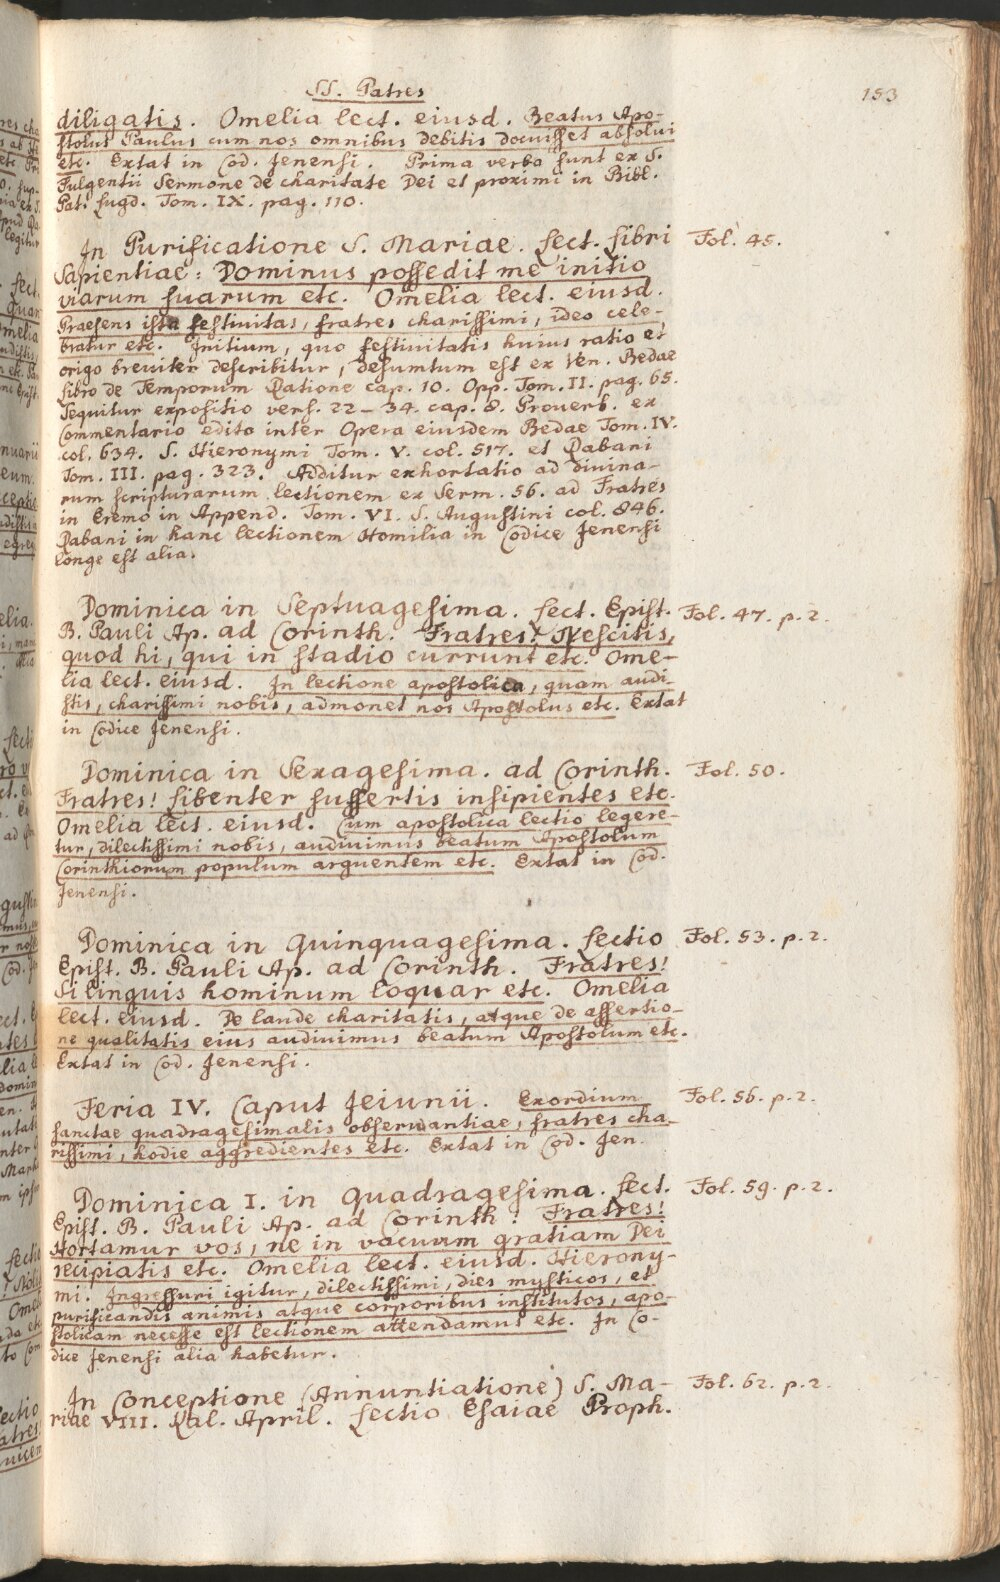 SS. Patres
153
diligatis. Omelia lect. eiusd. Beatus Apo-
stolus Paulus cum nos omnibus debitis docuisset absolui
etc. Extat in Cod. Jenensi. Prima verba sunt ex S.
Fulgentii Sermone de charitate Dei et proximi in Bibl.
Pat. Lugd. Tom. IX. pag. 110.
In Purificatione S. Mariae. Lect. Libri
Fol. 45.
Sapientiae: Dominus possedit me initio
viarum suarum etc. Omelia lect. eiusd.
Praesens ista festivitas, fratres charissimi, ideo cele-
bratur etc. Initium, quo festivitatis huius ratio et
origo breviter describitur, desumtum est ex Ven. Bedae
Libro de Temporum Ratione cap. 10. Opp. Tom. II. pag. 65.
Sequitur expositio vers. 22-34. cap. 8. Proverb. ex
Commentario edito inter Opera eiusdem Bedae Tom. IV.
col. 634. S. Hieronymi Tom. V. col. 517. et Rabani
Tom. III. pag. 323. Additur exhortatio ad divina-
rum scripturarum lectionem ex Serm. 56. ad Fratres
in Eremo in Append. Tom. VI. S. Augustini col. 846.
Rabani in hanc lectionem Homilia in Codice Jenensi
longe est alia.
Dominica in Septuagesima. Lect. Epist.
Fol. 47. p. 2.
B. Pauli Ap. ad Corinth. Fratres! Nescitis,
quod hi, qui in stadio currunt etc. Ome-
lia lect. eiusd. In lectione apostolica, quam audi-
stis, charissimi nobis, admonet nos Apostolus etc. Extat
in Codice Jenensi.
Dominica in Sexagesima. ad Corinth.
Fol. 50.
Fratres! Libenter suffertis insipientes etc.
Omelia lect. eiusd. Cum apostolica lectio legere-
tur, dilectissimi nobis, audivimus beatum Apostolum
Corinthiorum populum arguentem etc. Extat in Cod.
Jenensi.
Dominica in Quinquagesima. Lectio
Fol. 53. p. 2.
Epist. B. Pauli Ap. ad Corinth. Fratres!
Si linguis hominum loquar etc. Omelia
lect. eiusd. De laude charitatis, atque de assertio-
ne qualitatis eius audivimus beatum Apostolum etc.
Extat in Cod. Jenensi.
Feria IV. Caput Jeiunii. Exordium
Fol. 56. p. 2.
sanctae quadragesimalis observantiae, fratres cha-
rissimi, hodie aggredientes etc. Extat in Cod. Jen.
Dominica I. in Quadragesima. Lect.
Fol. 59. p. 2.
Epist. B. Pauli Ap. ad Corinth: Fratres!
Hortamur vos, ne in vacuum gratiam Dei
recipiatis etc. Omelia lect. eiusd. Hierony-
mi. Ingressuri igitur, dilectissimi, dies mysticos, et
purificandis animis atque corporibus institutos, apo-
stolicam necesse est lectionem attendamus etc. In Co-
dice Jenensi alia habetur.
In Conceptione (Annuntiatione) S. Ma-
Fol. 62. p. 2.
riae VIII. Kal. April. Lectio Esaiae Proph.